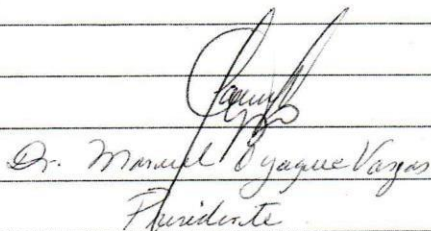 Dr. Manuel Oyague Vargas
Presidente